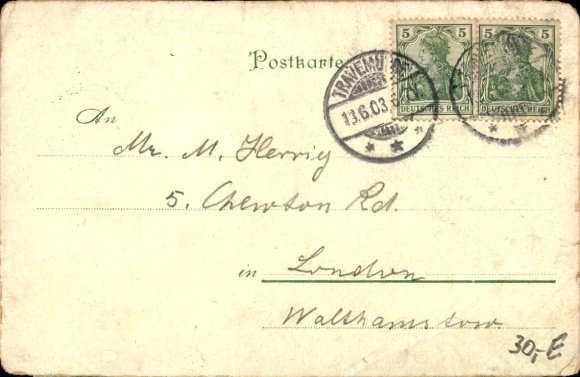 Postkarte
5 5
DEUTSCHES REICH DEUTSCHES REICH
TRAVEMÜNDE
13.6.03.
An
Mr. M. Herrig
5. Chewton Rd.
in London
Walthamstow.
30,-E